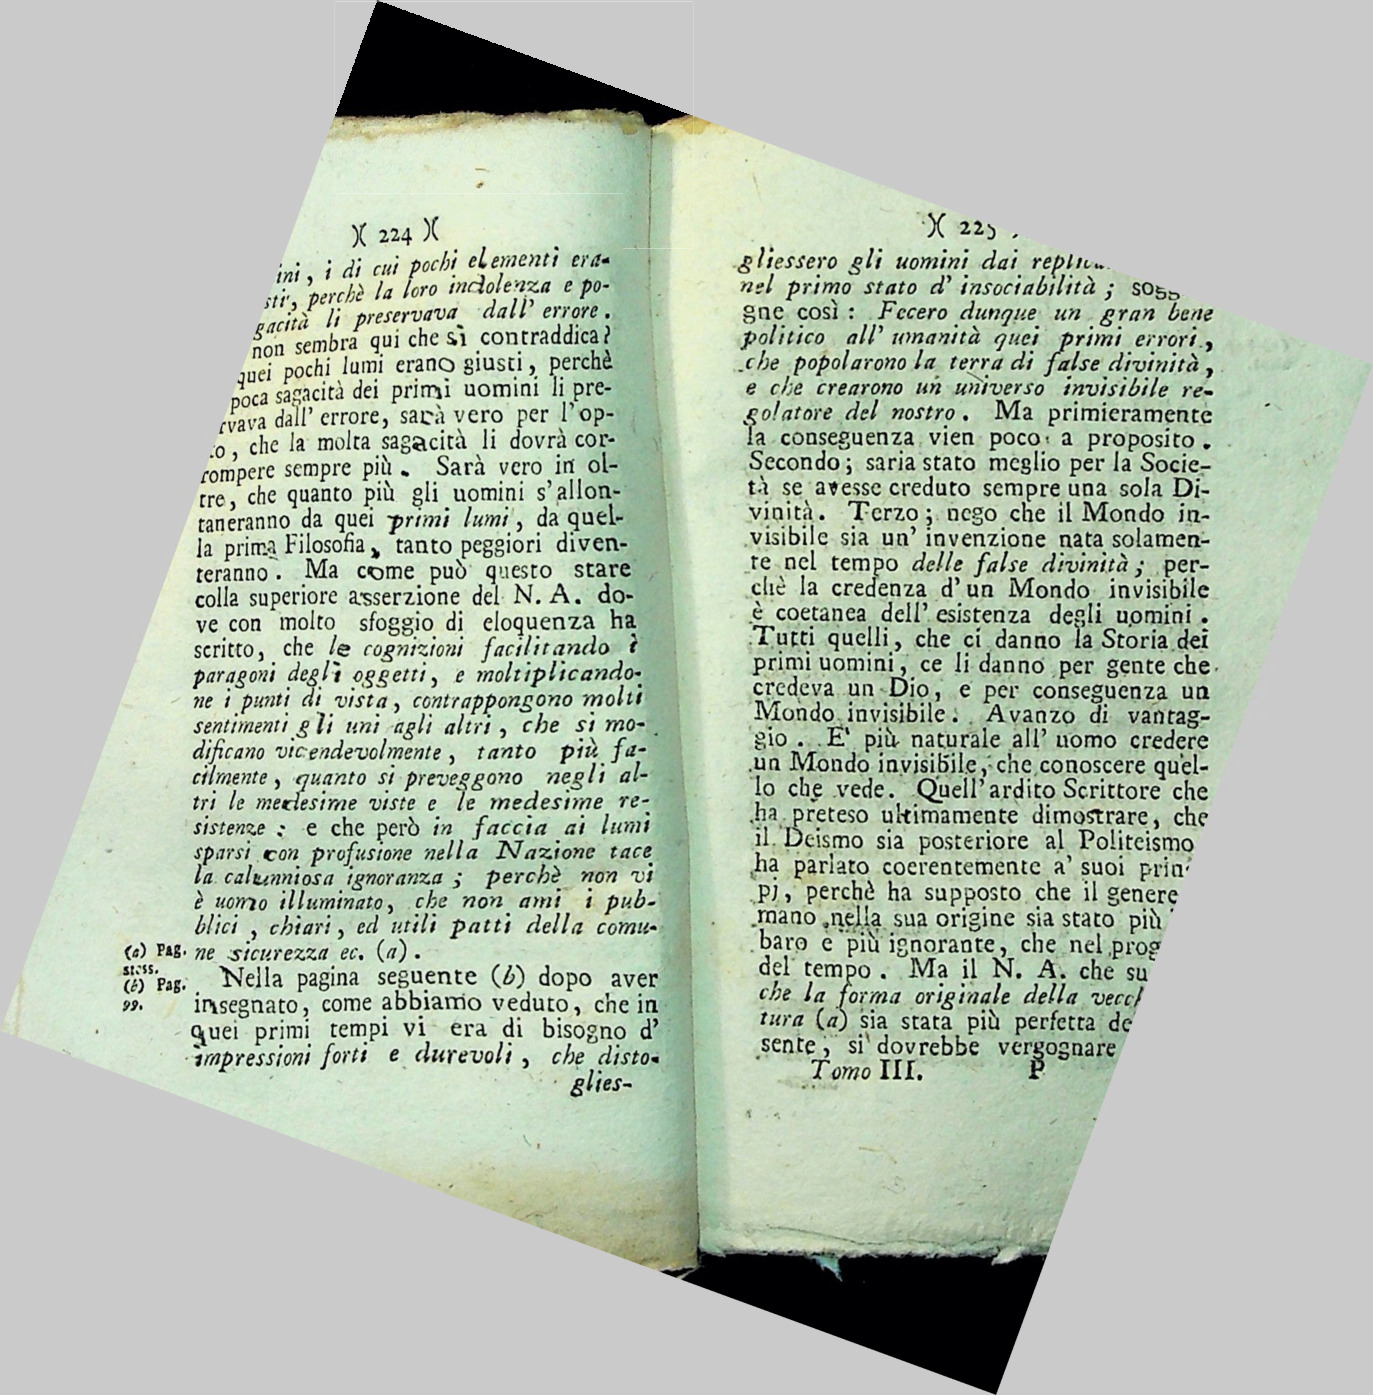 )( 224 )(
i di cui pochi elementi era-
perchè la loro indolenza e po-
li preservava dall' errore.
non sembra qui che si contraddica?
quei pochi lumi erano giusti, perchè
poca sagacità dei primi uomini li pre-
dall' errore, sarà vero per l'op-
, che la molta sagacità li dovrà cor-
rompere sempre più. Sarà vero in ol-
tre, che quanto più gli uomini s'allon-
taneranno da quei primi lumi, da quel-
la prima Filosofia, tanto peggiori diven-
teranno. Ma come può questo stare
colla superiore asserzione del N. A. do-
ve con molto sfoggio di eloquenza ha
scritto, che le cognizioni facilitando i
paragoni degli oggetti, e moltiplicando-
ne i punti di vista, contrappongono molti
sentimenti gli uni agli altri, che si mo-
dificano vicendevolmente, tanto più fa-
cilmente, quanto si preveggono negli al-
tri le medesime viste e le medesime re-
sistenze: e che però in faccia ai lumi
sparsi con profusione nella Nazione tace
la calunniosa ignoranza; perchè non vi
è uomo illuminato, che non ami i pub-
blici, chiari, ed utili patti della comu-
ne sicurezza ec. (a).
(a) Pag. stess.
(b) Pag. 99.
Nella pagina seguente (b) dopo aver
insegnato, come abbiamo veduto, che in
quei primi tempi vi era di bisogno d'
impressioni forti e durevoli, che disto-
glies-
)( 225
gliessero gli uomini dai
nel primo stato d' insociabilità;
gne così: Fecero dunque un gran bene
politico all' umanità quei primi errori,
che popolarono la terra di false divinità,
e che crearono un universo invisibile re-
golatore del nostro. Ma primieramente
la conseguenza vien poco a proposito.
Secondo; saria stato meglio per la Socie-
tà se avesse creduto sempre una sola Di-
vinità. Terzo; nego che il Mondo in-
visibile sia un' invenzione nata solamen-
te nel tempo delle false divinità; per-
chè la credenza d'un Mondo invisibile
è coetanea dell' esistenza degli uomini.
Tutti quelli, che ci danno la Storia dei
primi uomini, ce li danno per gente che
credeva un Dio, e per conseguenza un
Mondo invisibile. Avanzo di vantag-
gio. E' più naturale all' uomo credere
un Mondo invisibile, che conoscere quel-
lo che vede. Quell'ardito Scrittore che
ha preteso ultimamente dimostrare, che
il Deismo sia posteriore al Politeismo
ha parlato coerentemente a' suoi prin
pj, perchè ha supposto che il genere
mano nella sua origine sia stato più
baro e più ignorante, che nel
del tempo. Ma il N. A. che su
che la forma originale della
tura (a) sia stata più perfetta
sente, si dovrebbe vergognare
Tomo III. P